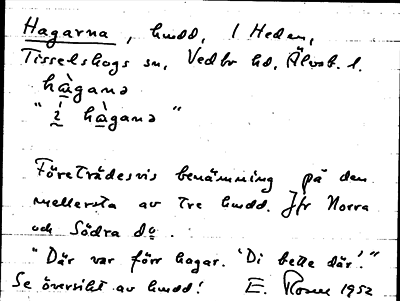 Hagarna, hmdd, 1 Heden,
Tisselskogs sn, Vedbo hd, Älvsb. l.
hàgana
"i hàgana"
Företrädesvis benämning på den
mellersta av tre hmdd. Jfr Norra
och Södra do.
"Där var förr hagar. 'Di bette där'."
Se översikt av hmdd! E. Rosen 1952